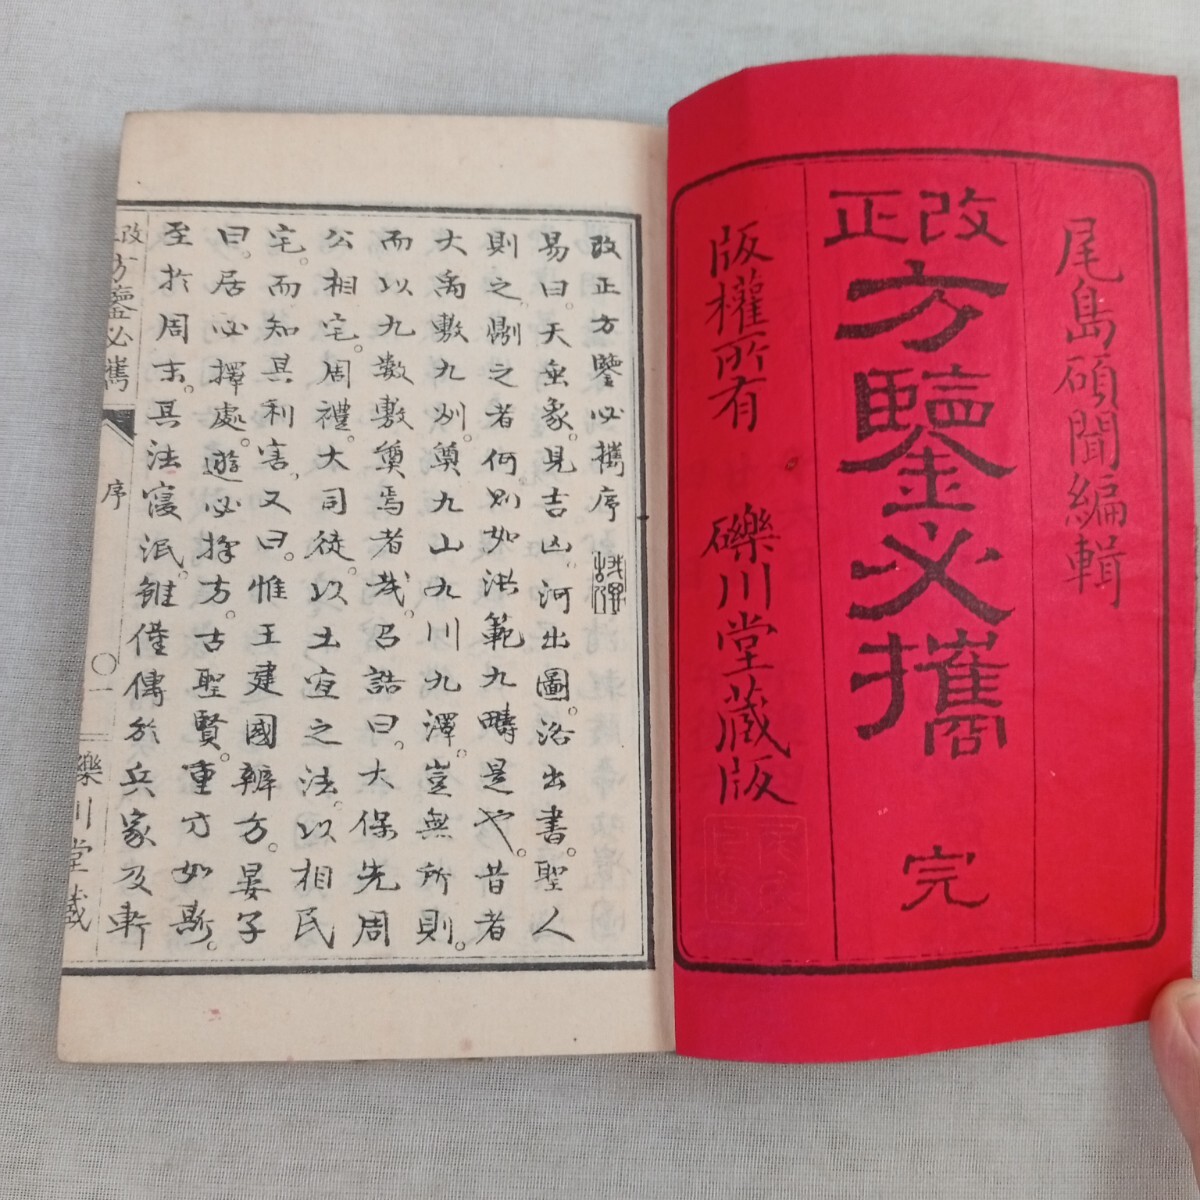 尾島碩聞編輯
改正
方鑒必攜 完
版權所有 礫川堂藏版
改正方鑒必攜序
易曰。天垂象。見吉凶。河出圖。洛出書。聖人
則之。則之者何。則如洪範九疇是也。昔者
大禹敷九州。奠九山九川九澤。豈無所則。
而以九數敷奠焉者哉。召誥曰。大保先周
公相宅。周禮。大司徒。以土宜之法。以相民
宅。而知其利害。又曰。惟王建國辨方。晏子
曰。居必擇處。遊必擇方。古聖賢。重方如斯。
至於周末。其法寖泯。雖僅傳於兵家及軒
改正方鑒必攜
序
〇一
礫川堂藏